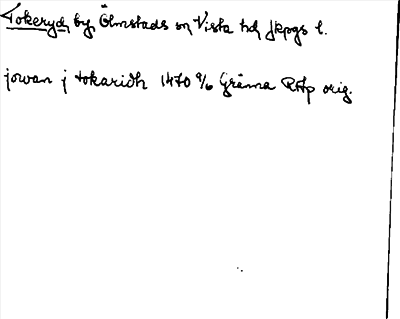 Tokeryd, by, Ölmstads sn, Vista hd, Jkpgs l.
jowan j tokaridh 1470 9/6 Gränna RAp orig.